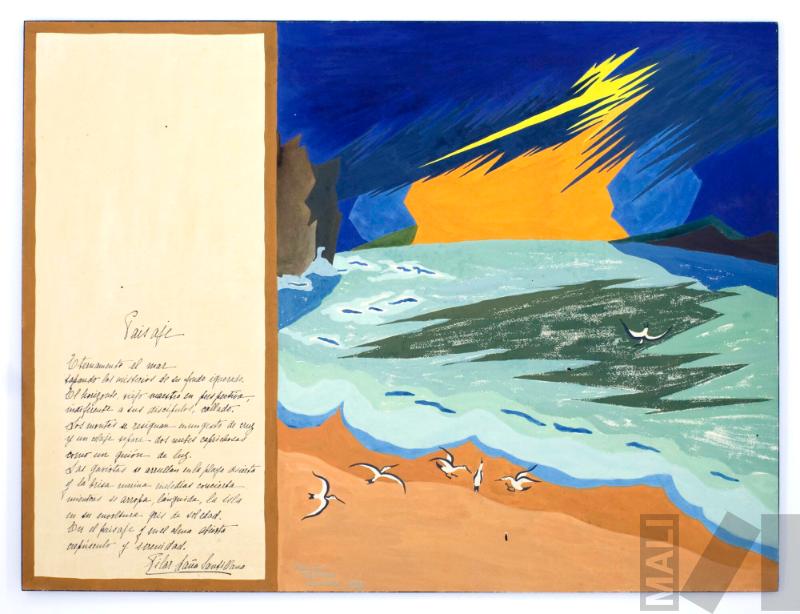 Paisaje
Eternamente el mar
tapando los misterios de su fondo ignorado.
El horizonte, viejo maestro en perspectiva
indiferente a sus discípulos, callado.
Los montes se resignan en un gesto de cruz
y un celaje separa dos nubes caprichosas
como un guión de luz.
Las gaviotas se arrullan en la playa desierta
y la brisa marina melodías concierta
mientras se arropa, lánguida, la isla
en su envoltura gris de soledad.
En el paisaje y en el alma abierta
crepúsculo y serenidad.
Pilar Laña Santillana
MALI